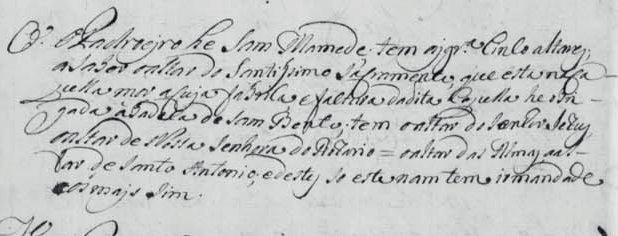 O Padroejro he Sam Mamede. tem a jgr.ª Sinco altarez,
a saber o altar do Santissimo Sacramento que esta na ca-
pella mor a cuja fabrica e factura da dita Capella he obri-
gada a de de Sam Bento, tem o altar do Senhor Jezus,
o altar de Nossa Senhora do Rozario = o altar das Almas, o al-
tar de Santo Antonio, e destes so este nam tem irmandade
e os mais sim.